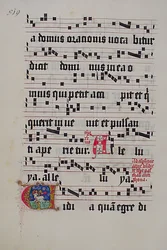 a domus orationis uoca bitur
dicit domi nus in ea o
mnis qui petit acci pit et q
querit inue nit et pulsan
ti ape rie tur A lle lu
alle lu ya
idi a quam egre di